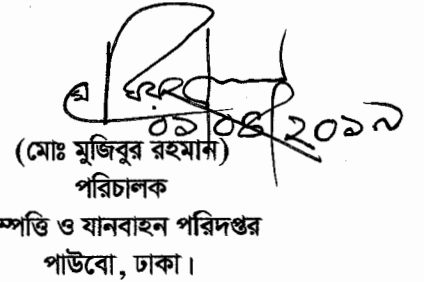 ০১/০৪/২০১৯
(মোঃ মুজিবুর রহমান)
পরিচালক
ম্পত্তি ও যানবাহন পরিদপ্তর
পাউবো, ঢাকা।